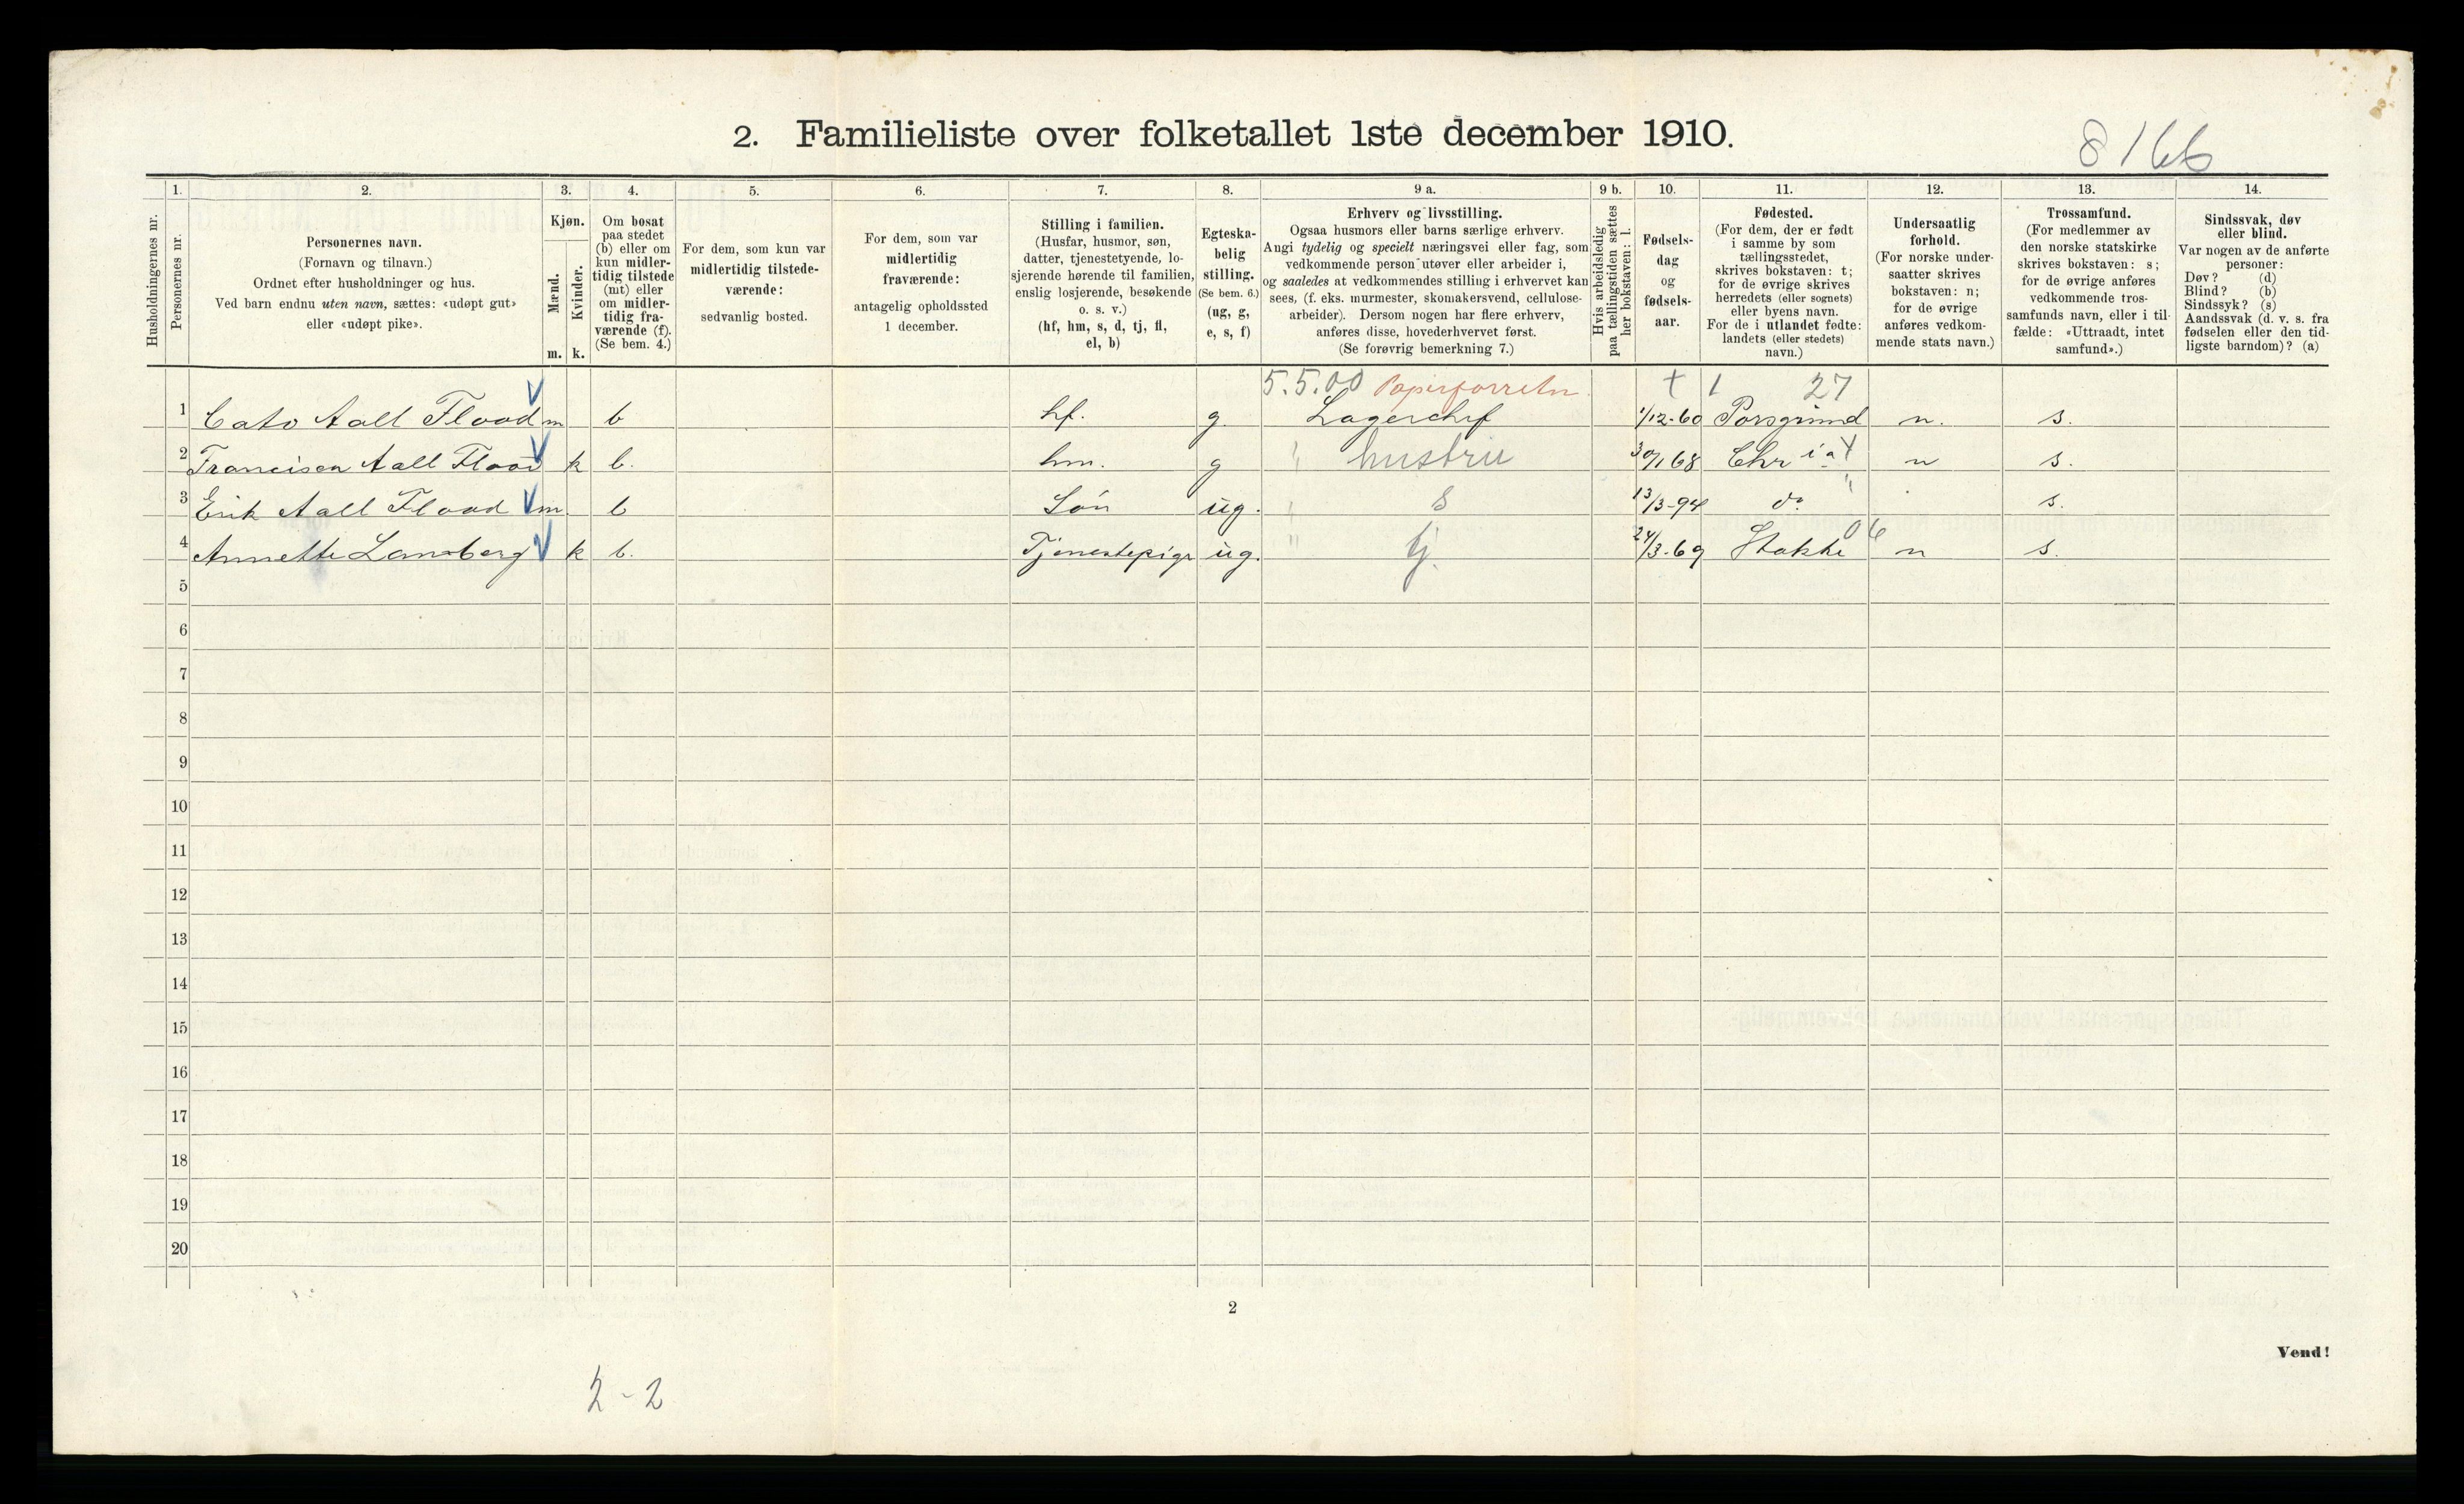 2. Familieliste over folketallet 1ste december 1910.
8166
Husholdningernes nr.
1.
Personernes nr.
2.
Personernes navn.
(Fornavn og tilnavn.)
Ordnet efter husholdninger og hus.
Ved barn endnu uten navn, sættes: «udøpt gut»
eller «udøpt pike».
3.
Kjøn.
Mænd.
Kvinder.
m. k.
4.
Om bosat
paa stedet
(b) eller om
kun midler-
tidig tilstede
(mt) eller
om midler-
tidig fra-
værende (f).
(Se bem. 4.)
5.
For dem, som kun var
midlertidig tilstede-
værende:
sedvanlig bosted.
6.
For dem, som var
midlertidig
fraværende:
antagelig opholdssted
1 december.
7.
Stilling i familien.
(Husfar, husmor, søn,
datter, tjenestetyende, lo-
sjerende hørende til familien,
enslig losjerende, besøkende
o. s. v.)
(hf, hm, s, d, tj, fl,
el, b)
8.
Egteska-
belig
stilling.
(Se bem. 6.)
(ug, g,
e, s, f)
9 a.
Erhverv og livsstilling.
Ogsaa husmors eller barns særlige erhverv.
Angi tydelig og specielt næringsvei eller fag, som
vedkommende person utøver eller arbeider i,
og saaledes at vedkommendes stilling i erhvervet kan
sees, (f. eks. murmester, skomakersvend, cellulose-
arbeider). Dersom nogen har flere erhverv,
anføres disse, hovederhvervet først.
(Se forøvrig bemerkning 7.)
9 b.
Hvis arbeidsledig
paa tællingstiden sættes
her bokstaven: l.
10.
Fødsels-
dag
og
fødsels-
aar.
11.
Fødested.
(For dem, der er født
i samme by som
tællingsstedet,
skrives bokstaven: t;
for de øvrige skrives
herredets (eller sognets)
eller byens navn.
For de i utlandet fødte:
landets (eller stedets)
navn.)
12.
Undersaatlig
forhold.
(For norske under-
saatter skrives
bokstaven: n;
for de øvrige
anføres vedkom-
mende stats navn.)
13.
Trossamfund.
(For medlemmer av
den norske statskirke
skrives bokstaven: s;
for de øvrige anføres
vedkommende tros-
samfunds navn, eller i til-
fælde: «Uttraadt, intet
samfund».)
14.
Sindssvak, døv
eller blind.
Var nogen av de anførte
personer:
Døv? (d)
Blind? (b)
Sindssyk? (s)
Aandssvak (d. v. s. fra
fødselen eller den tid-
ligste barndom)? (a)
5.5.00 Papirforretn. + 1 27
1 Cato Aall Flood m b hf. g. Lagerchef 1/12-60 Porsgrund n. s.
2 Francisca Aall Flood k b. hm. g " hustru 30/1 68 Chr ia t n s.
3 Erik Aall Flood m b Sön ug. " s 13/3-94 do " s.
4 Annette Lansberg k b. Tjenestepige ug. " tj. 24/3-69 Stokke 06 n s.
5
6
7
8
9
10
11
12
13
14
15
16
17
18
19
20
2
Vend!
2-2